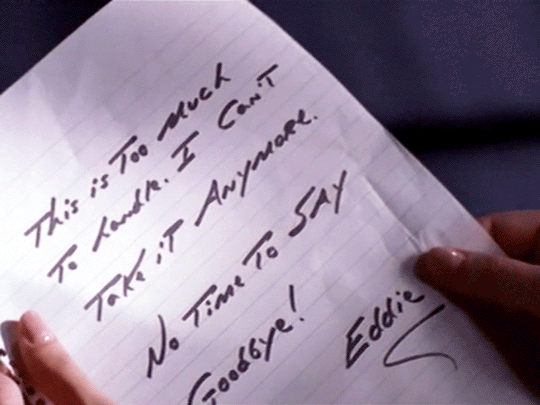 This is Too Much
To handle. I Can't
Take iT Anymore.
No Time To SAY
Goodbye!
Eddie